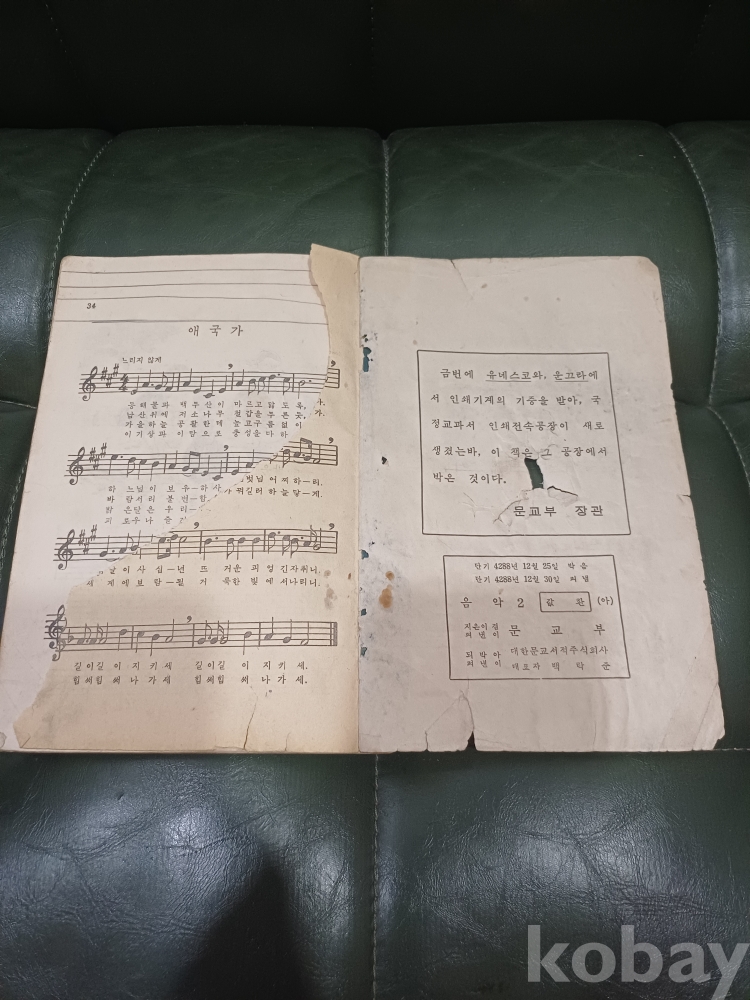 34
애 국 가
느리지 않게
동해물과 백두산이 마르고 닳도록,
남산위에 저소나무 철갑을 두른듯,
가을하늘 공활한데 높고구름없이
이기상과 이맘으로 충성을다하
하 느님이 보우하사
바 람서리 불변함
밝 은달은 우리
괴 로우나 즐
이사 십 년 뜨 거운 피 엉 긴자취니.
세 계에 보 람 될 거 룩한 빛 에서나리니.
길이길 이 지 키 세 길이길 이 지 키 세.
힘써힘 써 나 가 세 힘써힘 써 나 가 세.
금번에 유네스코와, 운끄라에
서 인쇄기계의 기증을 받아, 국
정교과서 인쇄전속공장이 새로
생겼는바, 이 책은 그 공장에서
박은 것이다.
문교부 장관
단기 4288년 12월 25일 박음
단기 4288년 12월 30일 펴냄
음 악 2 값 환 (아)
지은이 겸 펴낸이 문 교 부
되박아 펴낸이 대한문교서적주식회사
대표자 백 낙 준
kobay